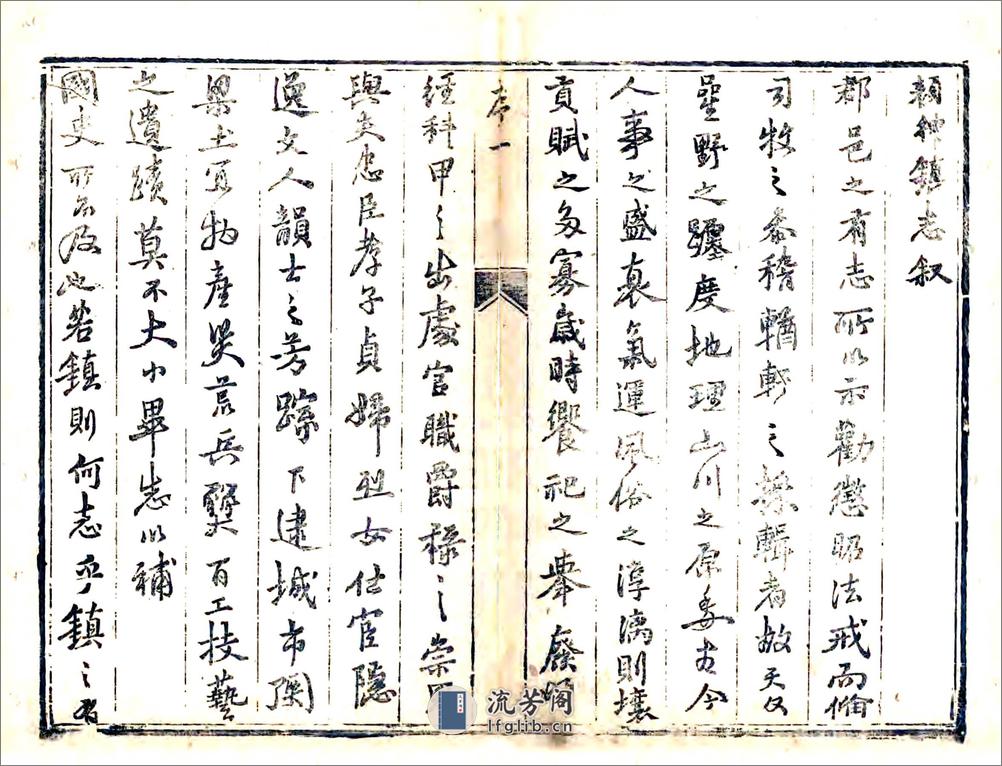 顏神鎮志叙
郡邑之有志所以示勸懲昭法戒而備
司牧之叅稽輶軒之採輯者故天文
星野之躔度地理山川之原委古今
人事之盛衰氣運風俗之淳漓則壤
貢賦之多寡歲時饗祀之舉廢
序一
經科甲之出處官職爵祿之崇
與夫忠臣孝子貞婦烈女仕宦隱
逸文人韻士之芳踪下逮城市關
梁土宜物產災荒兵燹百工技藝
之遺蹟莫不大小畢志以補
國史所不及也若鎮則何志乎鎮之有
流芳阁
lfglib.cn